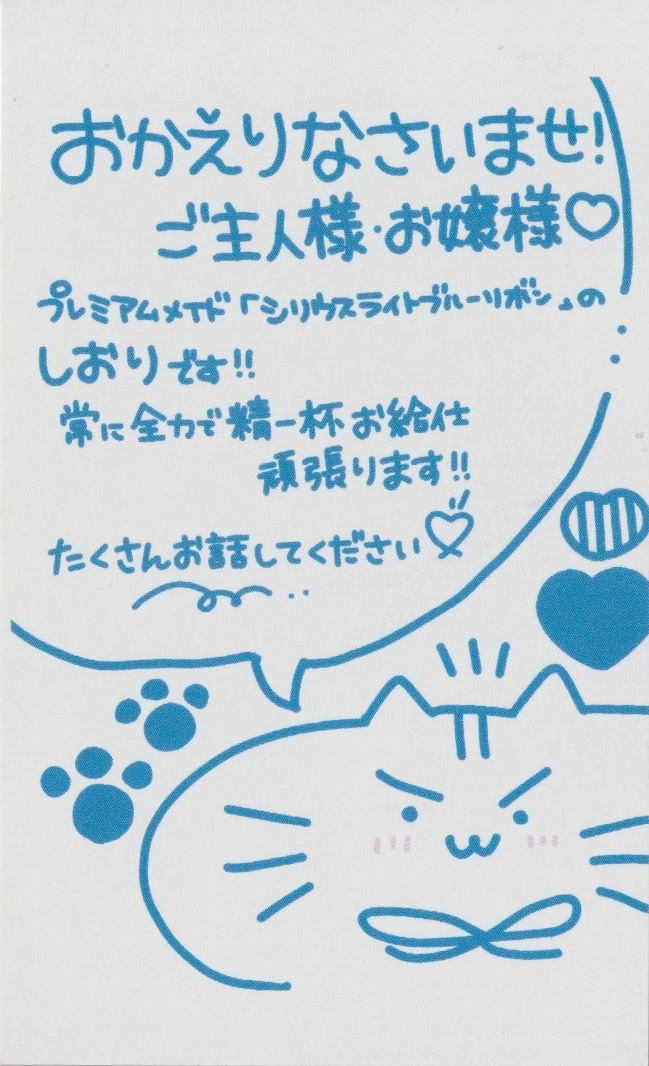 おかえりなさいませ!
ご主人様・お嬢様♡
プレミアムメイド「シリウスライトブルーリボン」の
しおりです!!
常に全力で精一杯お給仕
頑張ります!!
たくさんお話してください♡